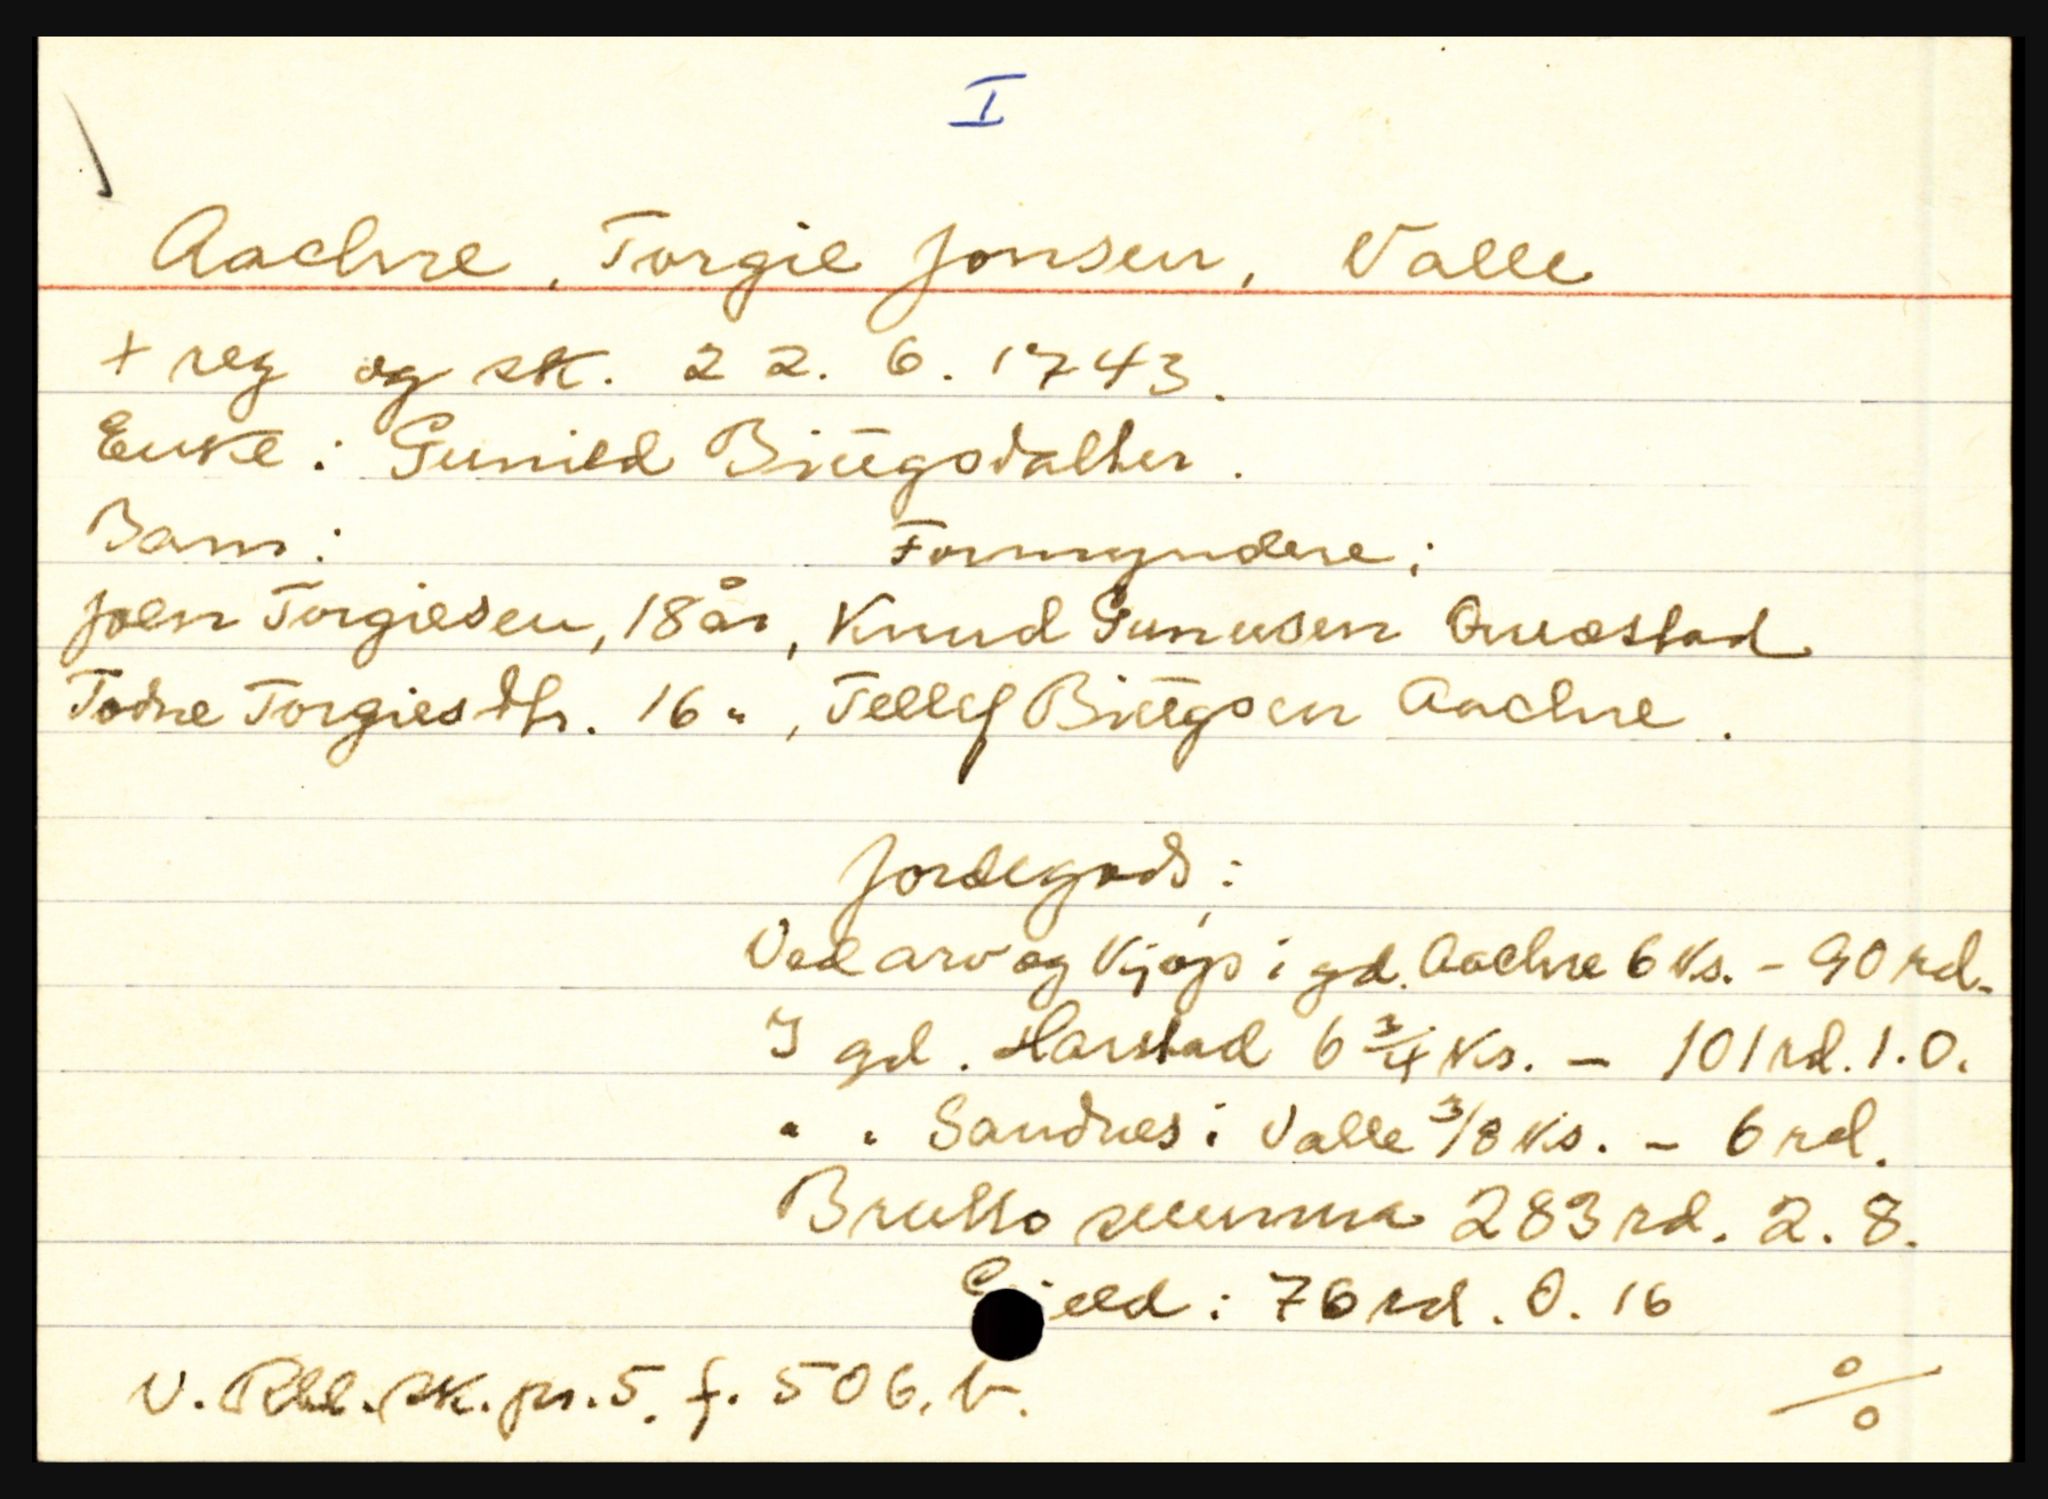 I
Aachre, Torgie Jonsen, Valle
+ reg og sk. 22. 6. 1743.
Enke: Gunild Biugsdatter.
Barn: Formyndere:
Joen Torgiesen, 18 år, Knud Gunusen Qvæstad
Todne Torgiesdtr. 16 ", Tellef Biugsen Aachre.
Jordegods:
Ved arv og kjøp i gd. Aachre 6 ks. - 90 rd.
I gd. Harstad 6 3/4 ks. - 101 rd. 1. 0.
" " Sandnes i Valle 3/8 ks. - 6 rd.
Brutto summa 283 rd. 2. 8.
Gjeld: 76 rd. 0. 16
V. Rbl. sk. pr. 5. f. 506. b.
%